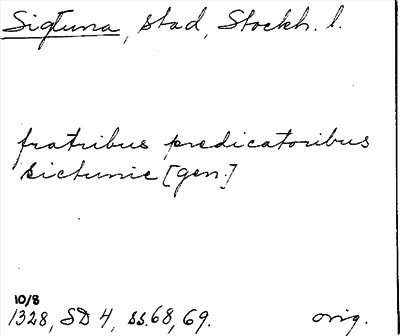 Sigtuna, stad, Stockh. l.
fratribus predicatoribus
sictunie [gen.]
10/8
1328, SD 4, ss. 68, 69. orig.